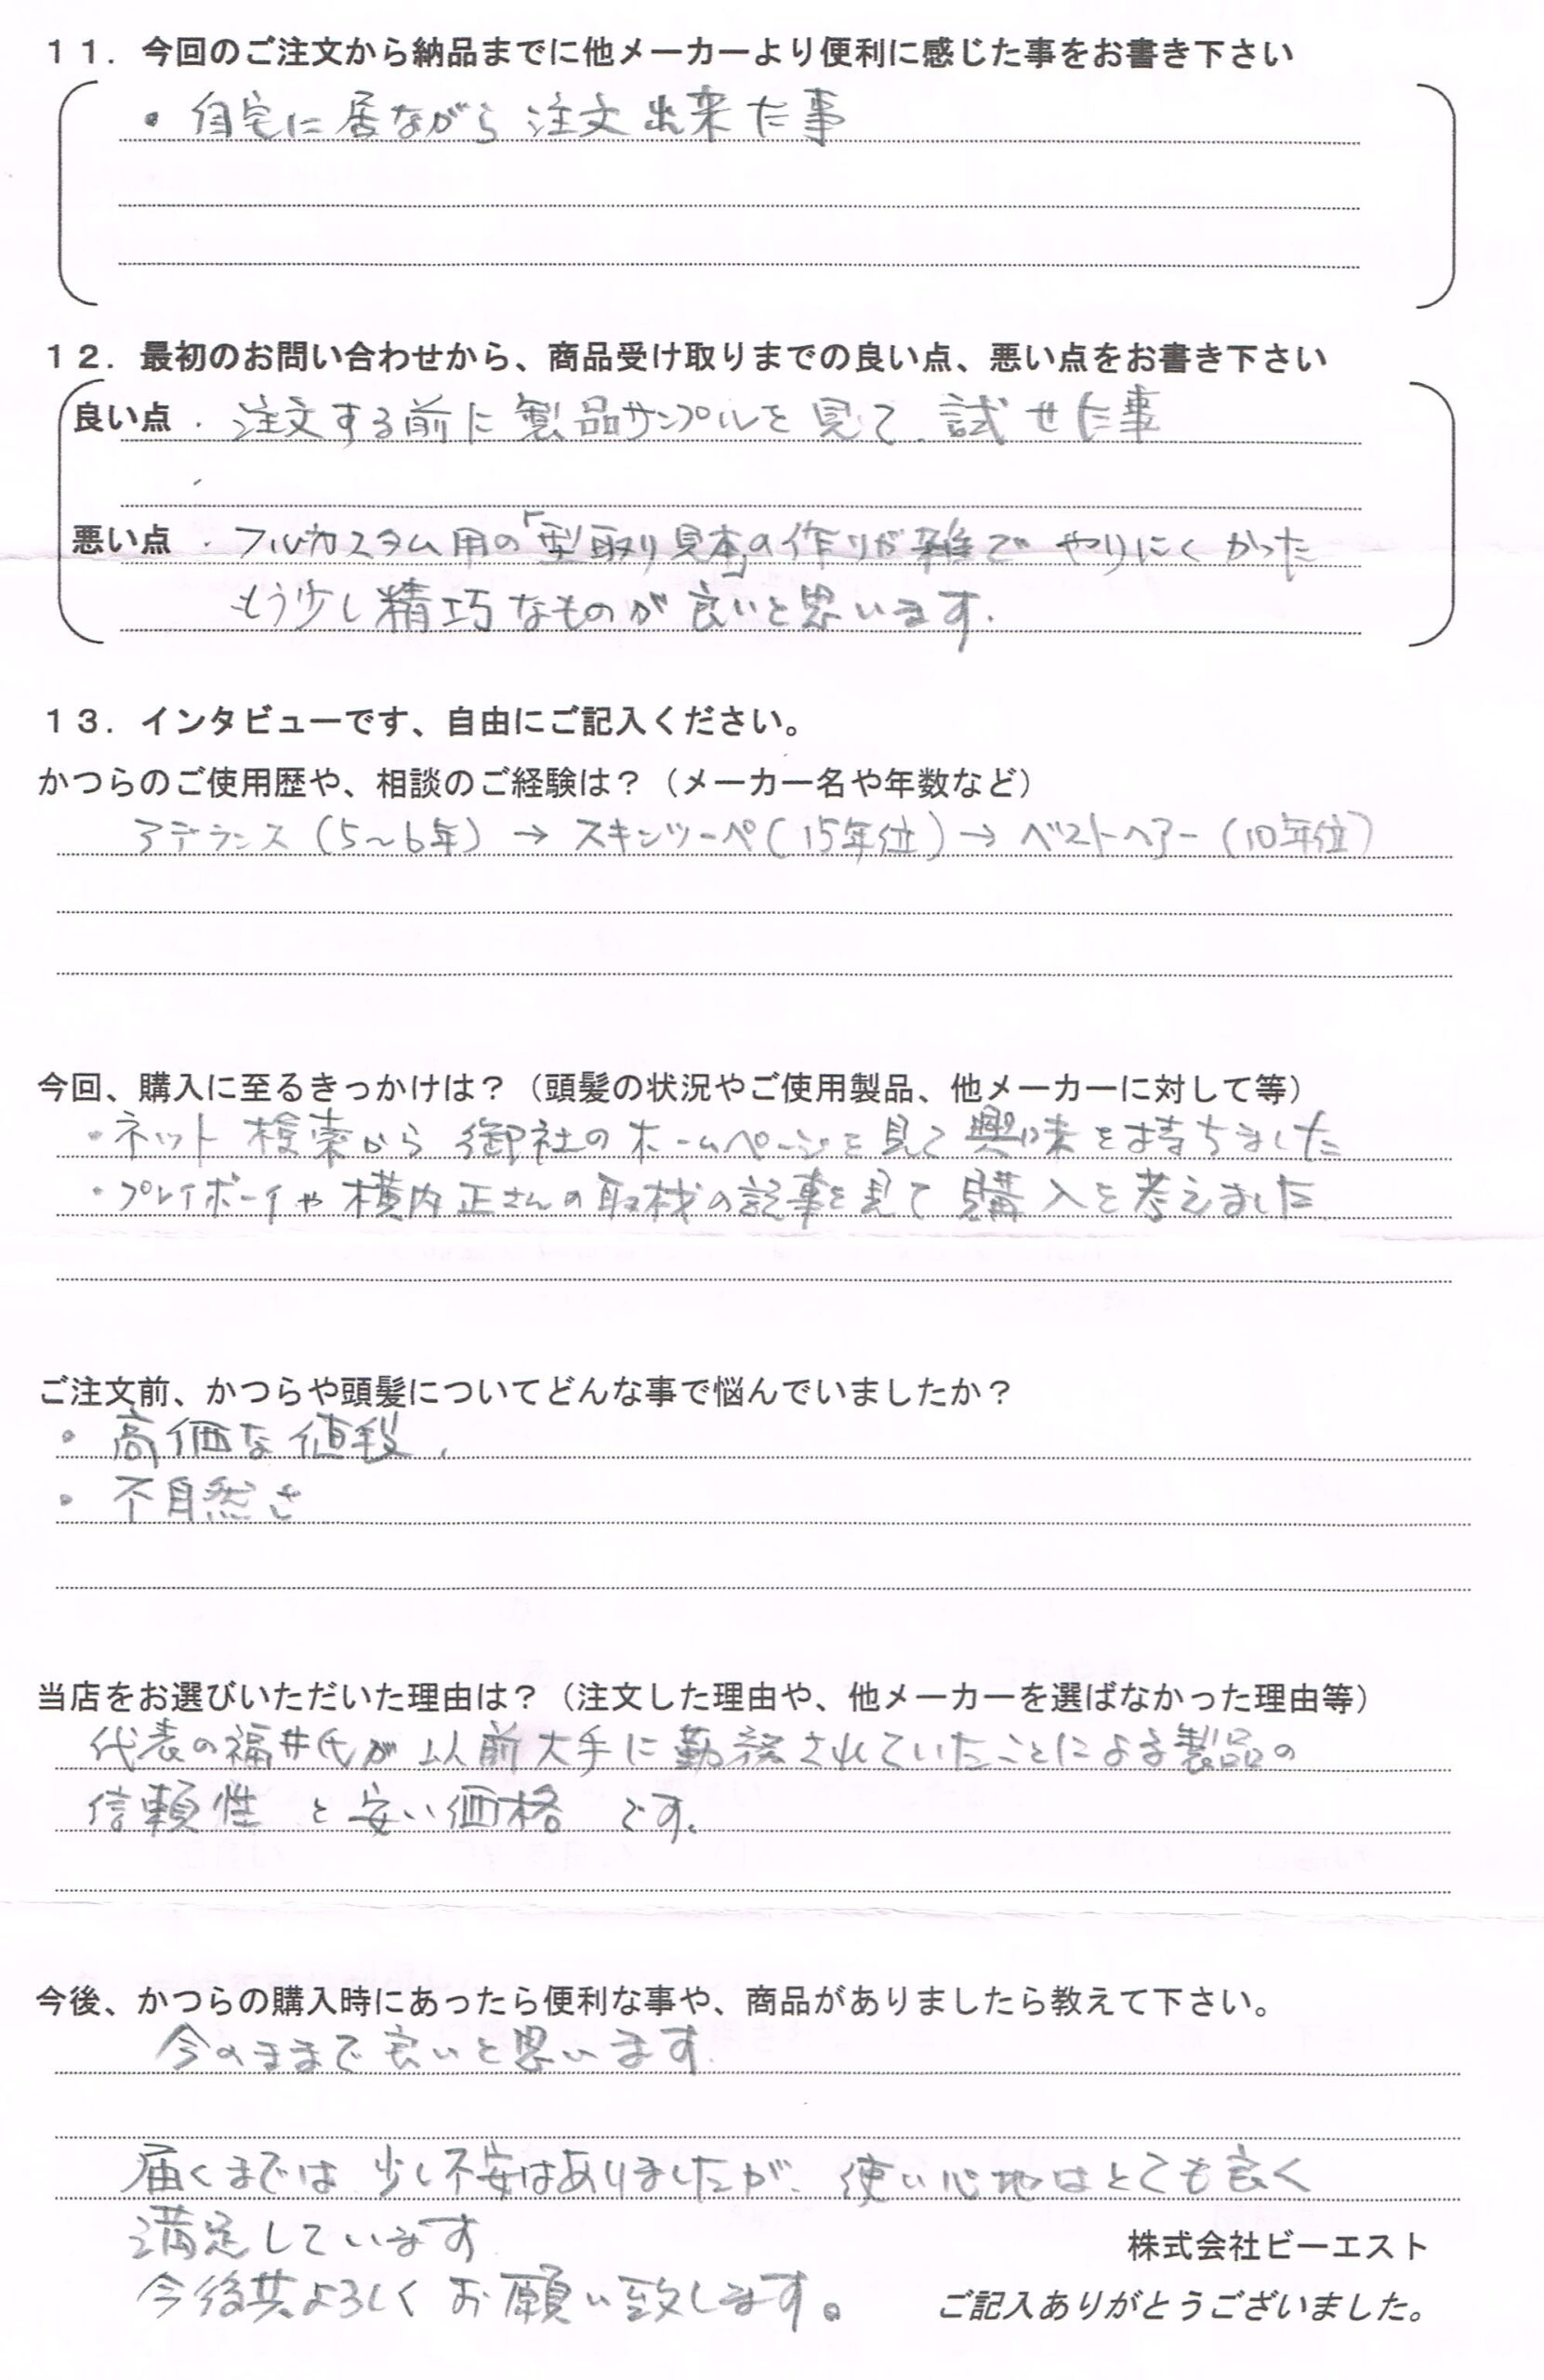 １１．今回のご注文から納品までに他メーカーより便利に感じた事をお書き下さい
・自宅に居ながら注文出来た事
１２．最初のお問い合わせから、商品受け取りまでの良い点、悪い点をお書き下さい
良い点・注文する前に製品サンプルを見て、試せた事
悪い点・フルカスタム用の「型取り見本」の作りが雑でやりにくかった
もう少し精巧なものが良いと思います.
１３．インタビューです、自由にご記入ください。
かつらのご使用歴や、相談のご経験は？（メーカー名や年数など）
アデランス（5〜6年）→スキンツーペ（15年位）→ベストヘアー（10年位）
今回、購入に至るきっかけは？（頭髪の状況やご使用製品、他メーカーに対して等）
・ネット検索から御社のホームページを見て興味を持ちました
・プレイボーイや横内正さんの取材の記事を見て購入を考えました
ご注文前、かつらや頭髪についてどんな事で悩んでいましたか？
・高価な値段.
・不自然さ
当店をお選びいただいた理由は？（注文した理由や、他メーカーを選ばなかった理由等）
代表の福井氏が以前大手に勤務されていたことによる製品の
信頼性と安い価格です.
今後、かつらの購入時にあったら便利な事や、商品がありましたら教えて下さい。
今のままで良いと思います
届くまでは少し不安はありましたが、使い心地はとても良く
満足しています
今後共よろしくお願い致します。
株式会社ビーエスト
ご記入ありがとうございました。